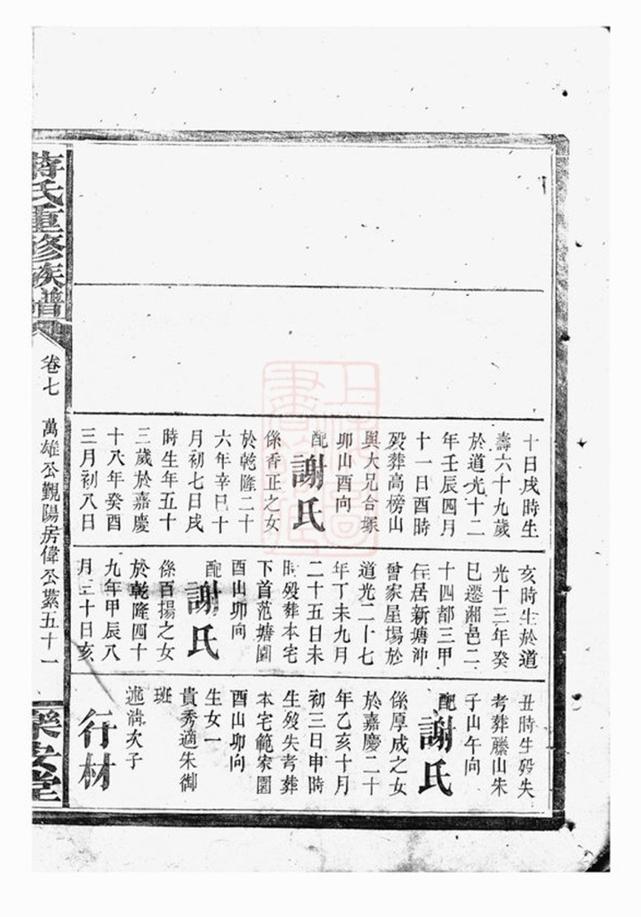 十日戌時生
壽六十九歲
於道光十二
年壬辰四月
十一日酉時
歿葬高榜山
與大兄合塚
卯山酉向
配謝氏
係香正之女
於乾隆二十
六年辛巳十
月初七日戌
時生年五十
三歲於嘉慶
十八年癸酉
三月初八日
亥時生於道
光十三年癸
巳遷湘邑二
十四都三甲
住居新塘沖
曾家屋場於
道光二十七
年丁未九月
二十五日未
時歿葬本宅
下首范塘園
酉山卯向
配謝氏
係百揚之女
於乾隆四十
九年甲辰八
月三十日亥
丑時生歿失
考葬藤山朱
子山午向
配謝氏
係厚成之女
於嘉慶二十
年乙亥十月
初三日申時
生歿失考葬
本宅範家園
酉山卯向
生女一
貴秀適朱御
班
行材
次子
蔣氏重修族譜
卷七
萬雄公觀陽房偉公派五十一
樂安堂